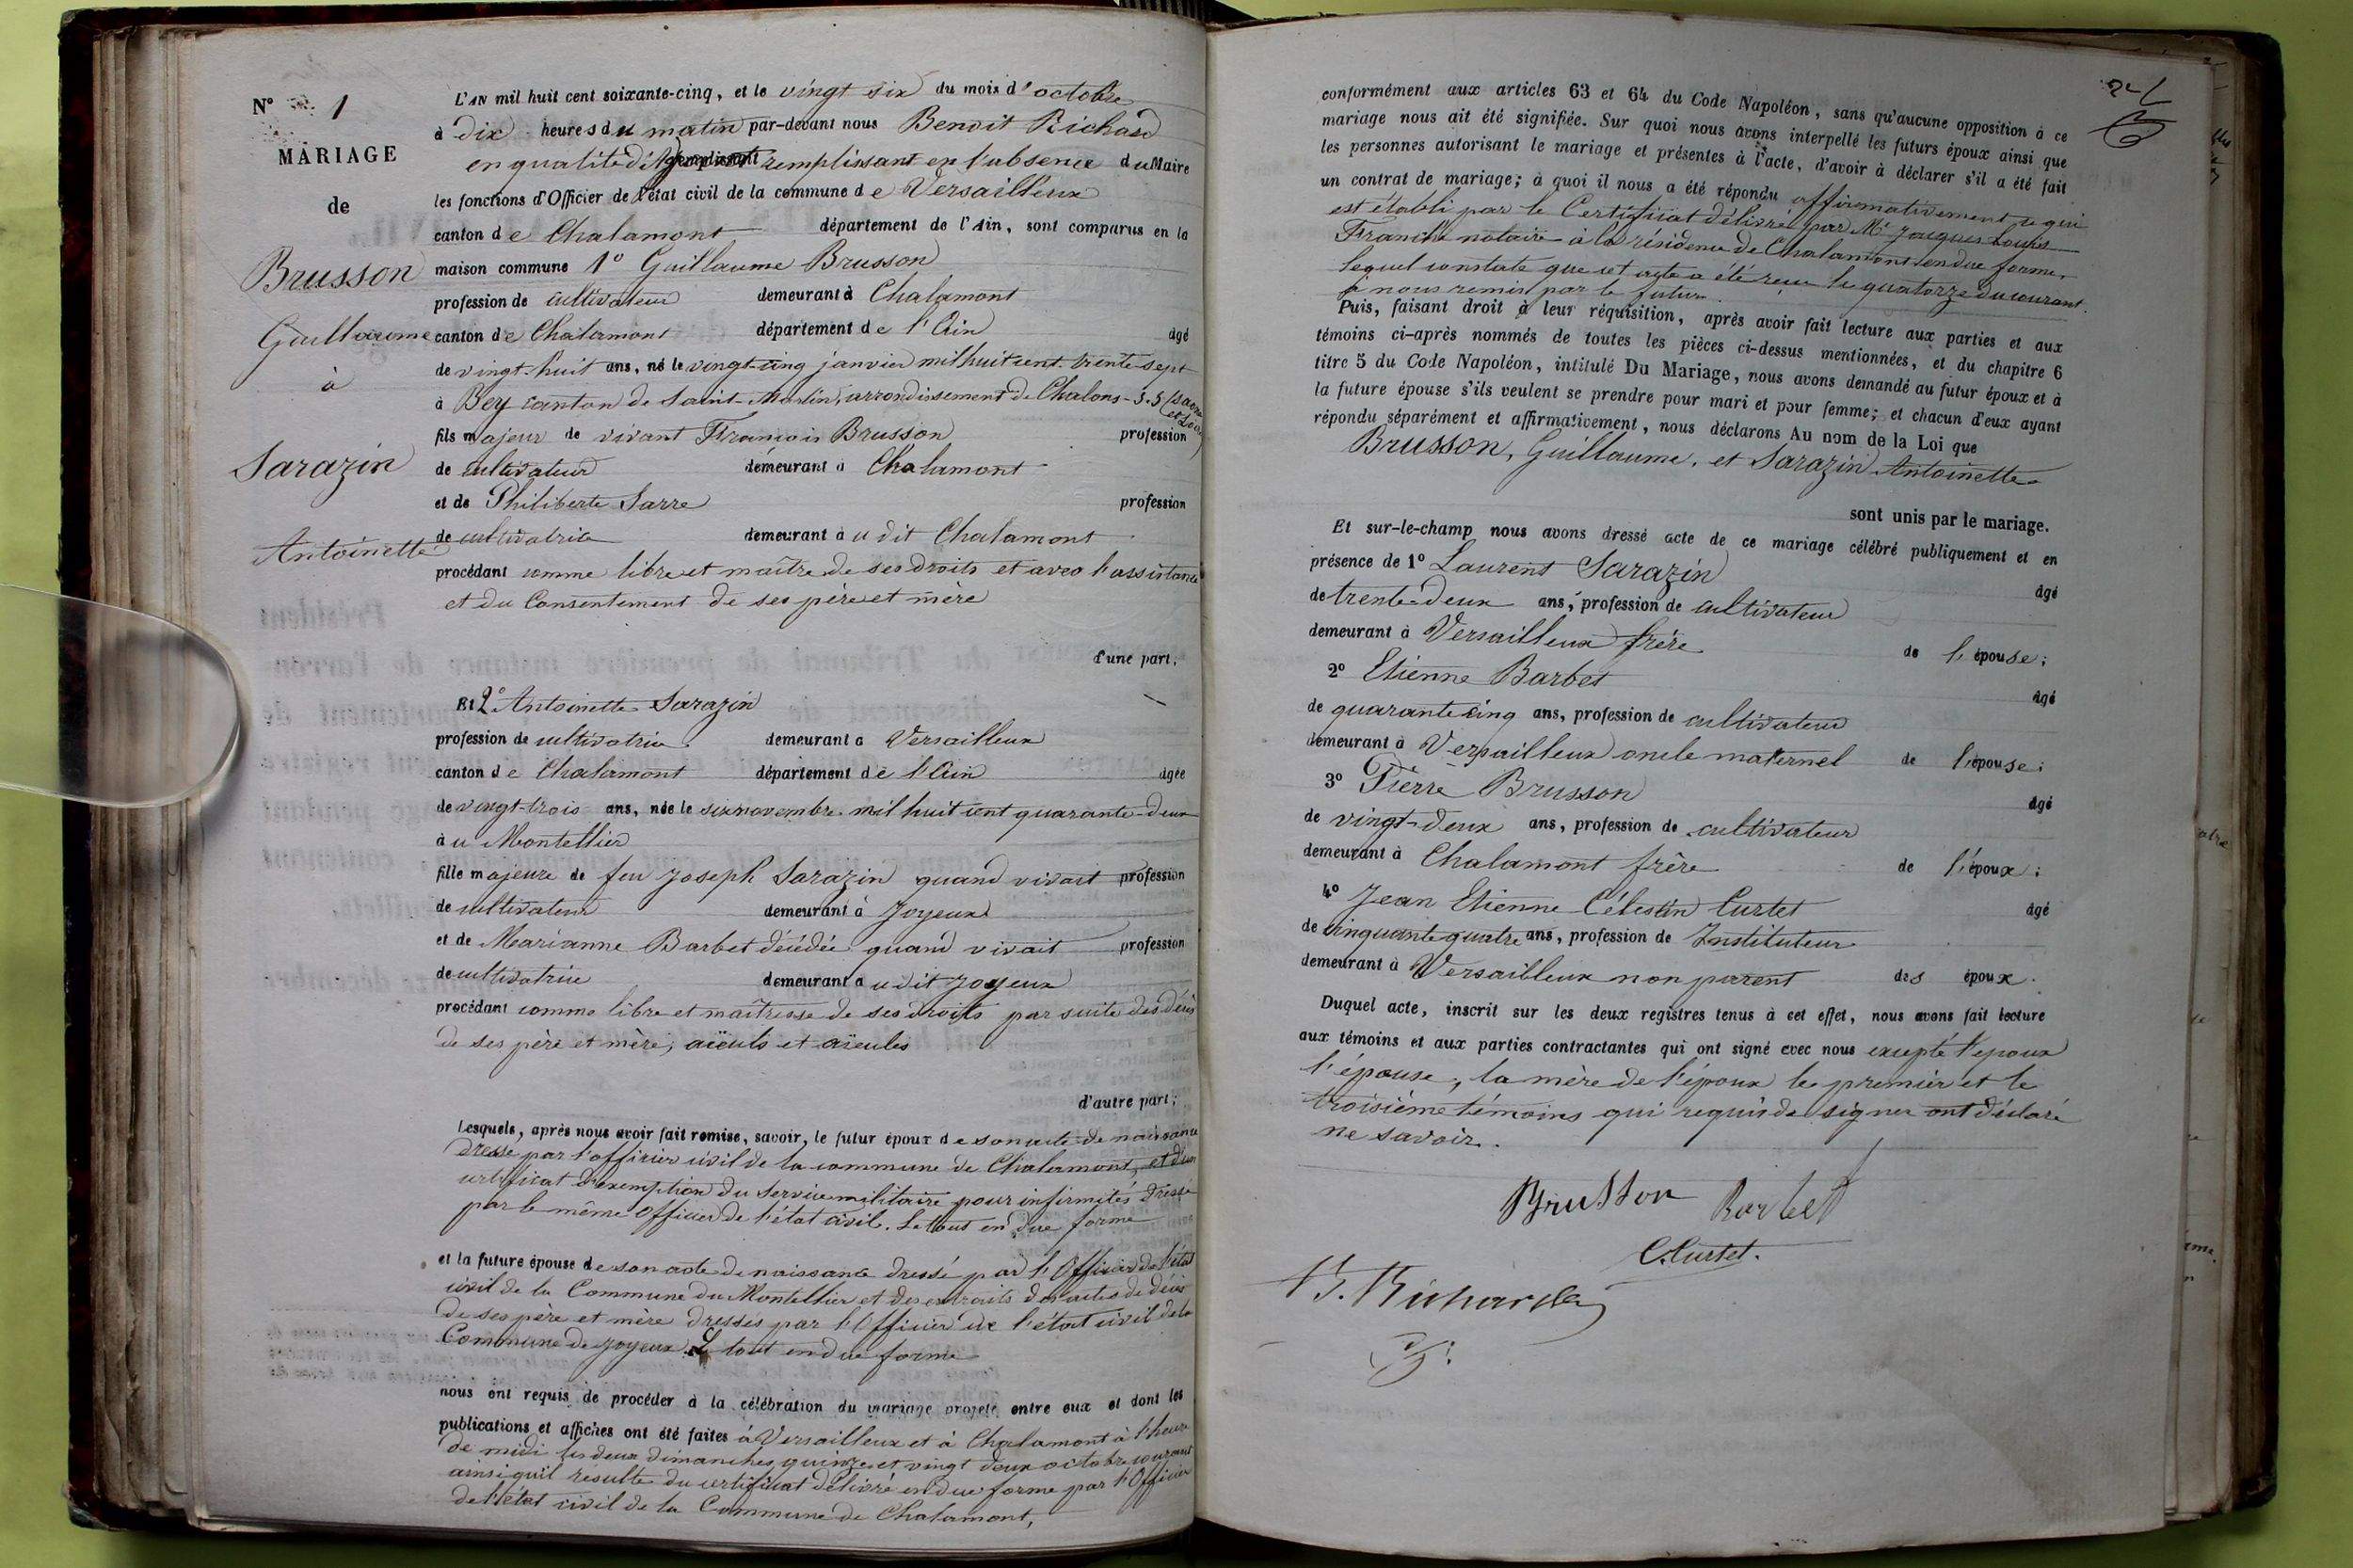 N° 1
MARIAGE
de
Brusson
Guillaume
à
Sarazin
Antoinette
L'AN mil huit cent soixante-cinq, et le vingt six du mois d'octobre
à dix heures du matin par-devant nous Benoit Richard
en qualité d' remplissant en l'absence du Maire
les fonctions d'Officier de l'état civil de la commune de Versailleux
canton de Chalamont département de l'Ain, sont comparus en la
maison commune 1° Guillaume Brusson
profession de cultivateur demeurant à Chalamont
canton de Chalamont département de l'Ain âgé
de vingt-huit ans, né le vingt-cinq janvier mil huit cent trente-sept
à Bey canton de Saint-Martin, arrondissement de Chalons-S-S (Saone et Loire)
fils majeur de vivant François Brusson profession
de cultivateur demeurant à Chalamont
et de Philiberte Sarre profession
de cultivatrice demeurant audit Chalamont
procédant comme libre et maître de ses droits et avec l'assistance
et du Consentement de ses père et mère
d'une part,
Et 2° Antoinette Sarazin
profession de cultivatrice demeurant à Versailleux
canton de Chalamont département de l'Ain âgée
de vingt-trois ans, née le six novembre mil huit cent quarante-deux
au Montellier
fille majeure de feu Joseph Sarazin quand vivait profession
de cultivateur demeurant à Joyeux
et de Marianne Barbet décédée quand vivait profession
de cultivatrice demeurant audit Joyeux
procédant comme libre et maîtresse de ses droits par suite des décès
de ses père et mère, aïeuls et aïeules
d'autre part;
Lesquels, après nous avoir fait remise, savoir, le futur époux de son acte de naissance
dressé par l'officier civil de la commune de Chalamont, et d'un
certificat d'exemption du service militaire pour infirmités dressé
par le même Officier de l'état civil. Le tout en due forme
et la future épouse de son acte de naissance dressé par l'Officier de l'état
civil de la Commune du Montellier et des extraits des actes de décès
de ses père et mère dressés par l'Officier de l'état civil de la
Commune de Joyeux. Le tout en due forme
nous ont requis de procéder à la célébration du mariage projeté entre eux et dont les
publications et affiches ont été faites à Versailleux et à Chalamont à l'heure
de midi les deux dimanches quinze et vingt deux octobre courant
ainsi qu'il resulte du certificat délivré en due forme par l'Officier
de l'état civil de la Commune de Chalamont,
conformément aux articles 63 et 64 du Code Napoléon, sans qu'aucune opposition à ce
mariage nous ait été signifiée. Sur quoi nous avons interpellé les futurs époux ainsi que
les personnes autorisant le mariage et présentes à l'acte, d'avoir à déclarer s'il a été fait
un contrat de mariage; à quoi il nous a été répondu affirmativement ce qui
est établi par le Certificat délivré par Me Jacques Louis
Franche notaire à la résidence de Chalamont en due forme,
lequel constate que cet acte a été reçu le quatorze du courant
à nous remis par le futur.
Puis, faisant droit à leur réquisition, après avoir fait lecture aux parties et aux
témoins ci-après nommés de toutes les pièces ci-dessus mentionnées, et du chapitre 6
titre 5 du Code Napoléon, intitulé Du Mariage, nous avons demandé au futur époux et à
la future épouse s'ils veulent se prendre pour mari et pour femme; et chacun d'eux ayant
répondu séparément et affirmativement, nous déclarons Au nom de la Loi que
Brusson, Guillaume, et Sarazin Antoinette
sont unis par le mariage.
Et sur-le-champ nous avons dressé acte de ce mariage célébré publiquement et en
présence de 1° Laurent Sarazin âgé
de trente-deux ans, profession de cultivateur
demeurant à Versailleux frère de l'épouse;
2° Etienne Barbet âgé
de quarante cinq ans, profession de cultivateur
demeurant à Versailleux oncle maternel de l'épouse;
3° Pierre Brusson âgé
de vingt-deux ans, profession de cultivateur
demeurant à Chalamont frère de l'époux;
4° Jean Etienne Célestin Curtet âgé
de cinquante quatre ans, profession de Instituteur
demeurant à Versailleux non parent des époux.
Duquel acte, inscrit sur les deux registres tenus à cet effet, nous avons fait lecture
aux témoins et aux parties contractantes qui ont signé avec nous excepté l'époux
l'épouse, la mère de l'époux le premier et le
troisième témoins qui requis de signer ont déclaré
ne savoir.
Brusson Barbet
C. Curtet.
B. Richard